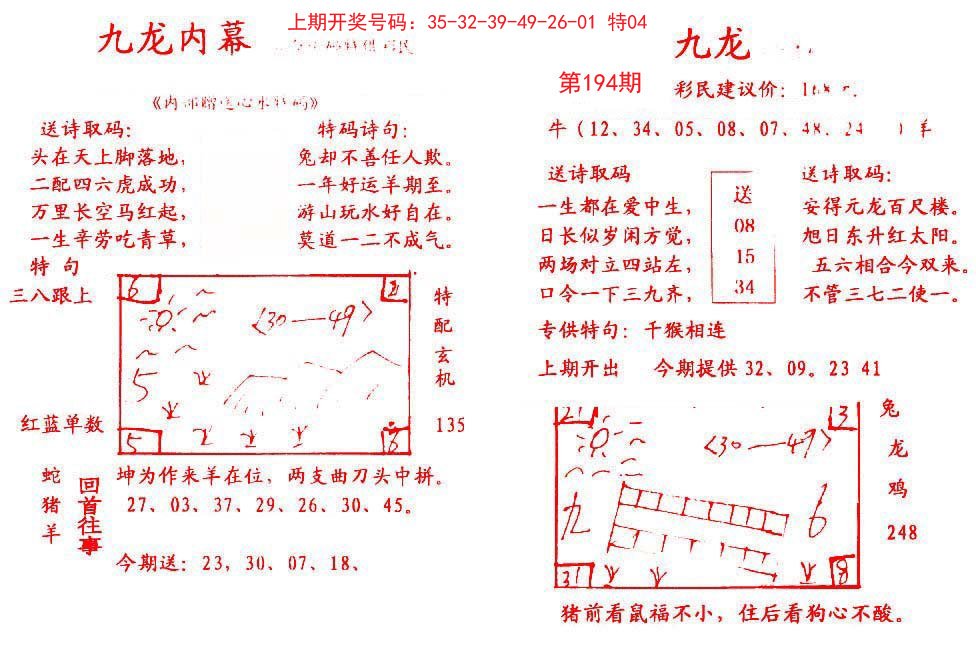 上期开奖号码：35-32-39-49-26-01 特04
九龙内幕
送诗取码：
头在天上脚落地，
二配四六虎成功，
万里长空马红起，
一生辛劳吃青草，
特码诗句：
兔却不善任人欺。
一年好运羊期至。
游山玩水好自在。
莫道一二不成气。
特 句
三八跟上
红蓝单数
6
2
〈30—49〉
5
5
6
特配玄机
135
蛇猪羊
回首往事
坤为作来羊在位，两支曲刀头中拼。
27、03、37、29、26、30、45。
今期送：23，30、07、18、
九龙
第194期
彩民建议价：
牛（12、34、05、08、07、48、24 ）羊
送诗取码
一生都在爱中生，
日长似岁闲方觉，
两场对立四站左，
口令一下三九齐，
送
08
15
34
送诗取码：
安得元龙百尺楼。
旭日东升红太阳。
五六相合今双来。
不管三七二使一。
专供特句：千猴相连
上期开出 今期提供32、09。23 41
21
3
〈30—49〉
九
6
31
8
兔龙鸡
248
猪前看鼠福不小，住后看狗心不酸。